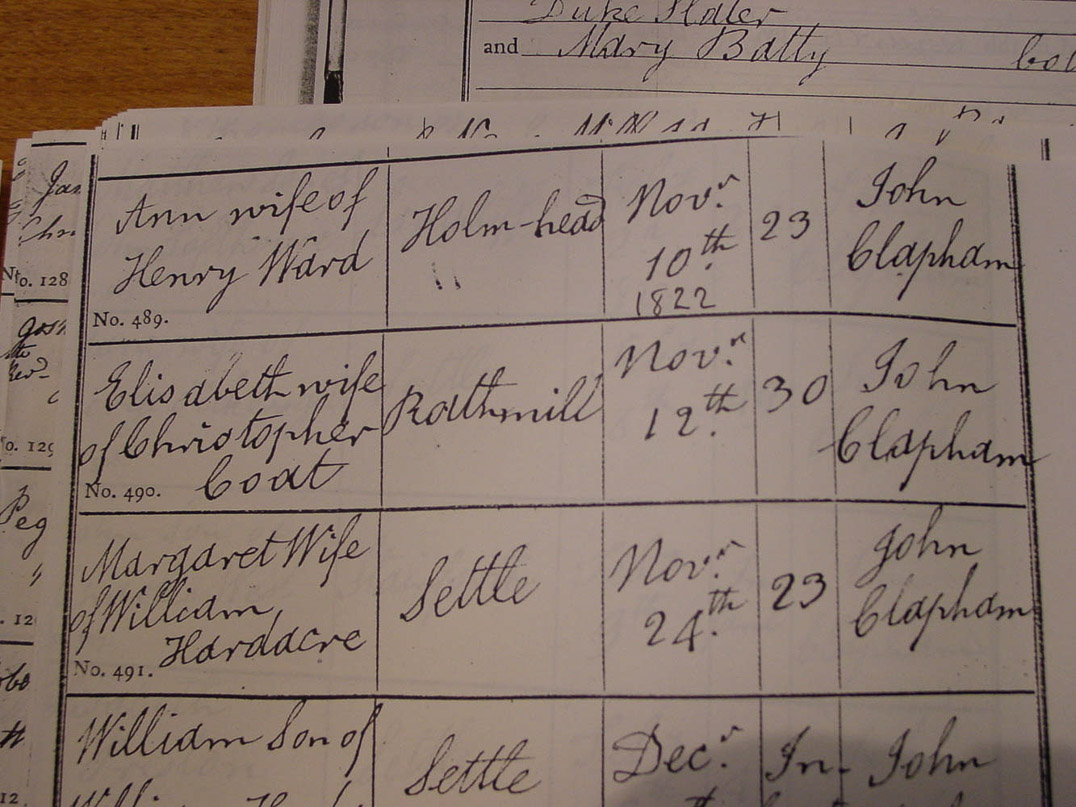 Duke Slater
and Mary Batty
Ann wife of Holm-head Novr. 23 John
Henry Ward 10th. Clapham
1822
No. 489.
Elisabeth wife Rathmill Novr. 30 John
of Christopher 12th. Clapham
No. 490. Coat
Margaret Wife Settle Novr. 23 John
of William 24th. Clapham
Hardacre
No. 491.
William Son of Settle Decr. In- John
No. 128
Peg